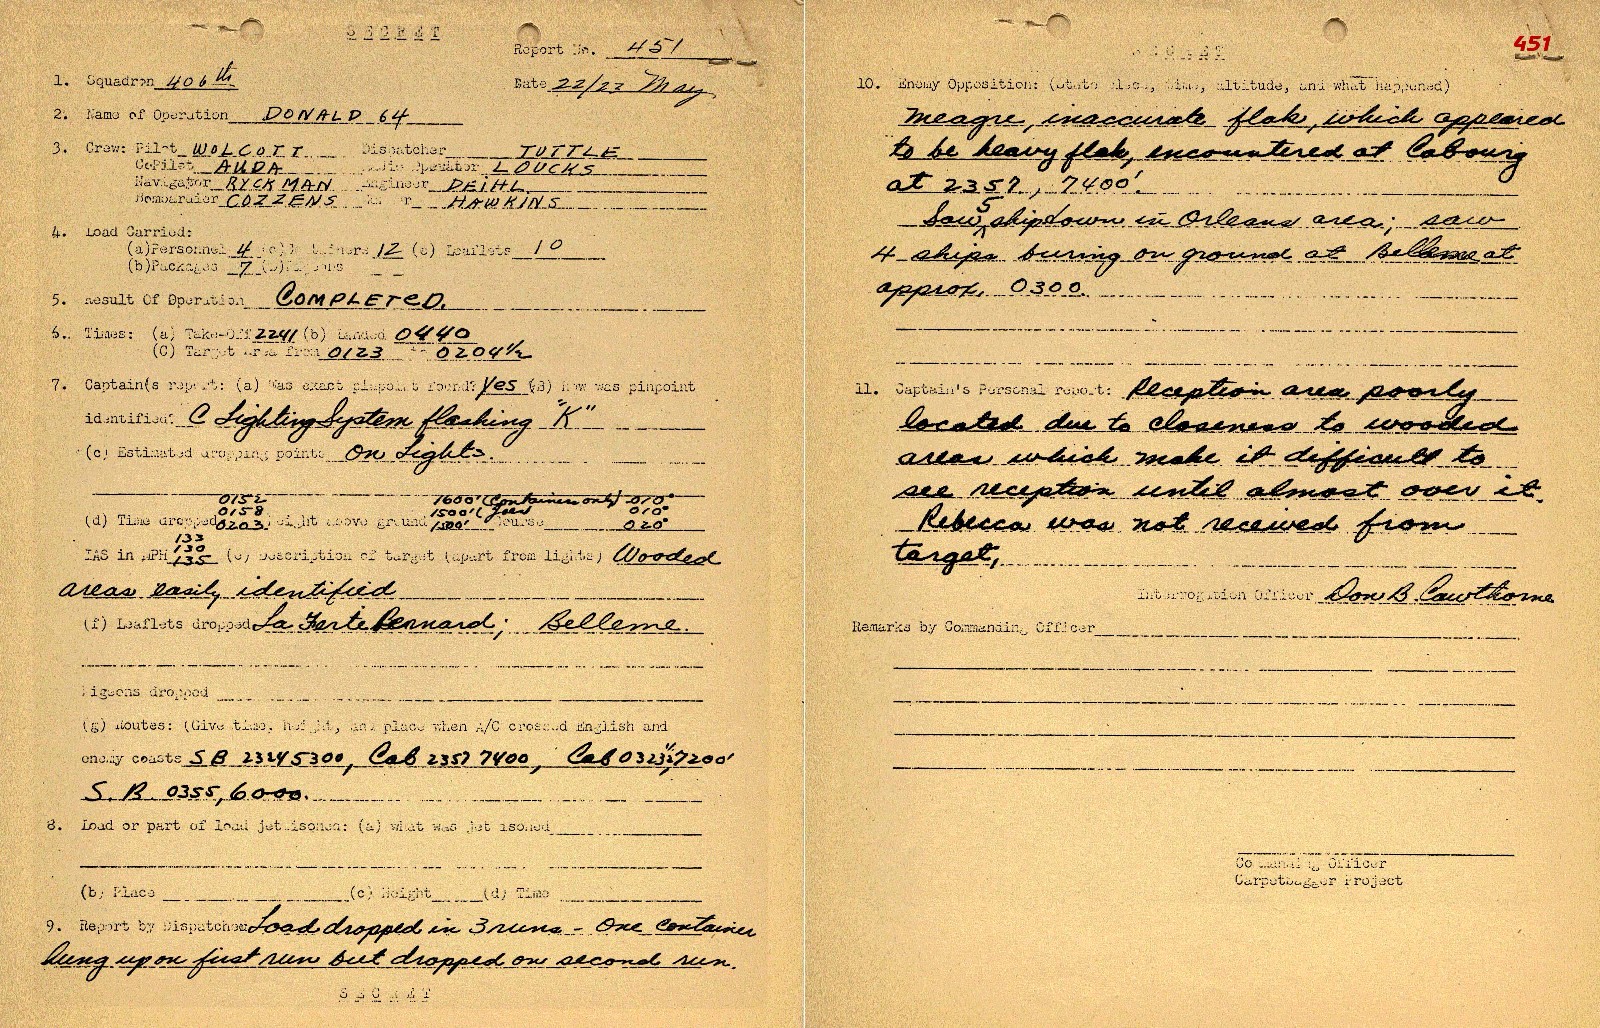 SECRET
Report No. 451
1. Squadron 406th Date 22/23 May
2. Name of Operation DONALD 64
3. Crew: Pilot WOLCOTT Dispatcher TUTTLE
CoPilot AUDA Radio Operator LOUCKS
Navigator RYCKMAN Engineer DEIHL
Bombardier COZZENS HAWKINS
4. Load Carried:
(a)Personnel 4 (c)Containers 12 (e) Leaflets 10
(b)Packages 7 (d)Pigeons
5. Result Of Operation COMPLETED.
6. Times: (a) Take-Off 2241 (b) Landed 0440
(C) Target area from 0123 to 0204 1/2
7. Captain(s report: (a) Was exact pinpoint found? Yes (B) How was pinpoint
identified? C Lighting System flashing "K"
(c) Estimated dropping points On Lights.
0152 1600' (Containers only) 010°
0158 1500' ( Joes 010°
(d) Time dropped 0203 Height above ground 1500' Course 020°
133
130
IAS in MPH 135 (e) Description of target (apart from lights) Wooded
areas easily identified
(f) Leaflets dropped La Ferte Bernard; Belleme.
Pigeons dropped
(g) Routes: (Give time, height, and place when A/C crossed English and
enemy coasts SB 2324 5300, Cab 2357 7400, Cab 0323 1/2, 7200'
S. B. 0355, 6000.
8. Load or part of load jettisoned: (a) what was jettisoned
(b) Place (c) Height (d) Time
9. Report by Dispatcher Load dropped in 3 runs - One container
hung up on first run but dropped on second run.
SECRET
SECRET
451
10. Enemy Opposition: (State place, time, altitude, and what happened)
Meagre, inaccurate flak, which appeared
to be heavy flak, encountered at Cabourg
at 2357, 7400'.
Saw 5 ships down in Orleans area; saw
4 ships buring on ground at Belleme at
approx. 0300.
11. Captain's Personal report: Reception area poorly
located due to closeness to wooded
areas which make it difficult to
see reception until almost over it.
Rebecca was not received from
target,
Interrogation Officer Don B. Cawthorne
Remarks by Commanding Officer
Commanding Officer
Carpetbagger Project